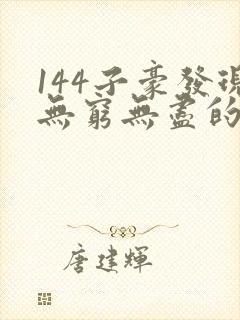 144子豪發現
無窮無盡的
唐建輝